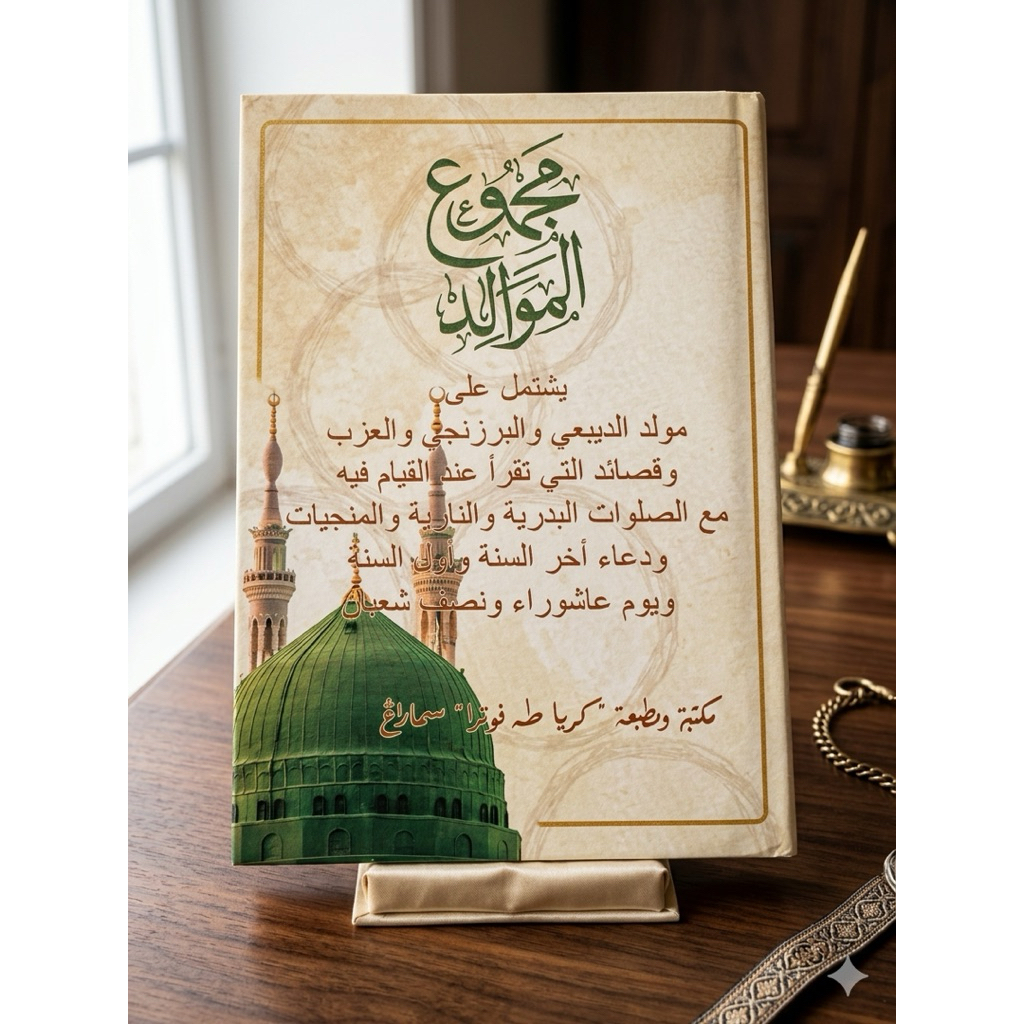 مجموع
الموالد
يشتمل على
مولد الديبعي والبرزنجي والعزب
وقصائد التي تقرأ عند القيام فيه
مع الصلوات البدرية والنارية والمنجيات
ودعاء أخر السنة وأول السنة
ويوم عاشوراء ونصف شعبان
مكتبة ومطبعة "كريا طه فوترا" سماراڠ